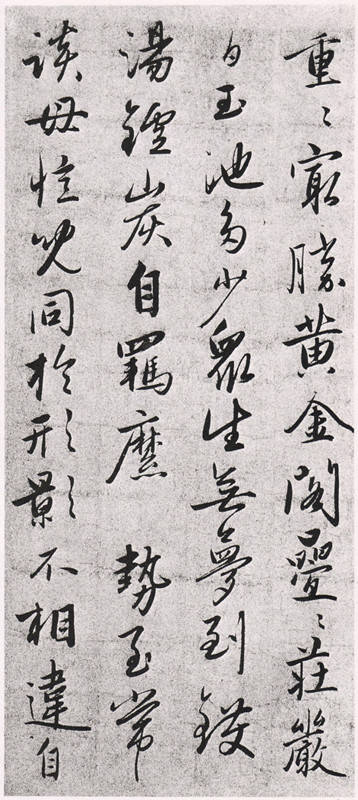 重〻冣勝黄金閣疊〻莊嚴
白玉池多少衆生無夢到鑊
湯鑪炭自羈縻 勢至常
談母憶兒同於形影不相違自